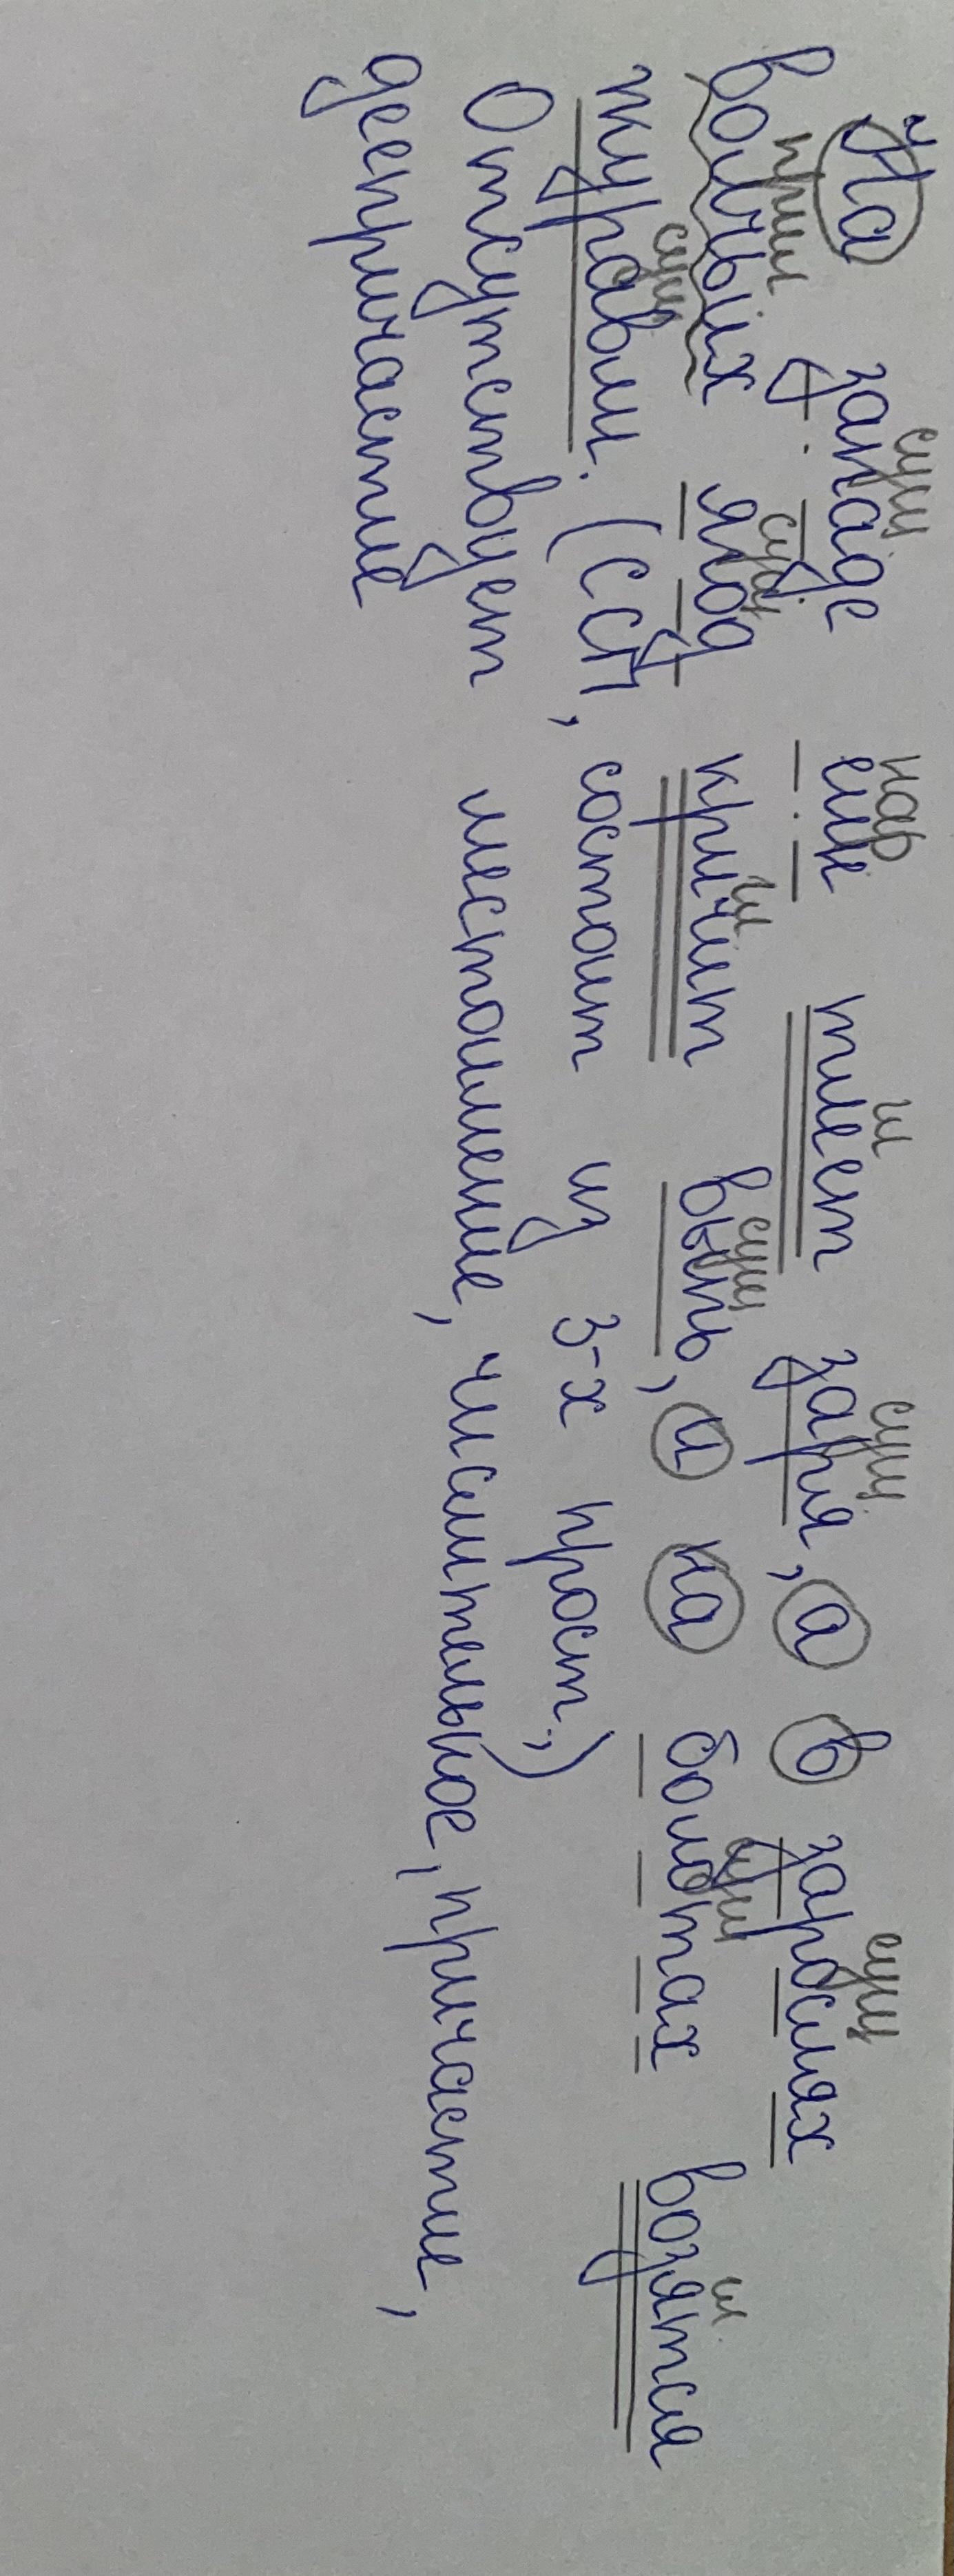 сущ нар гл сущ сущ
На западе еще тлеет заря, а в зарослях
прил сущ гл сущ сущ гл
волчьих ягод кричит выпь, а на болотах возятся
сущ
журавли. (ССП, состоит из 3-х прост.,)
Отсутствует местоимение, числительное, причастие,
деепричастие